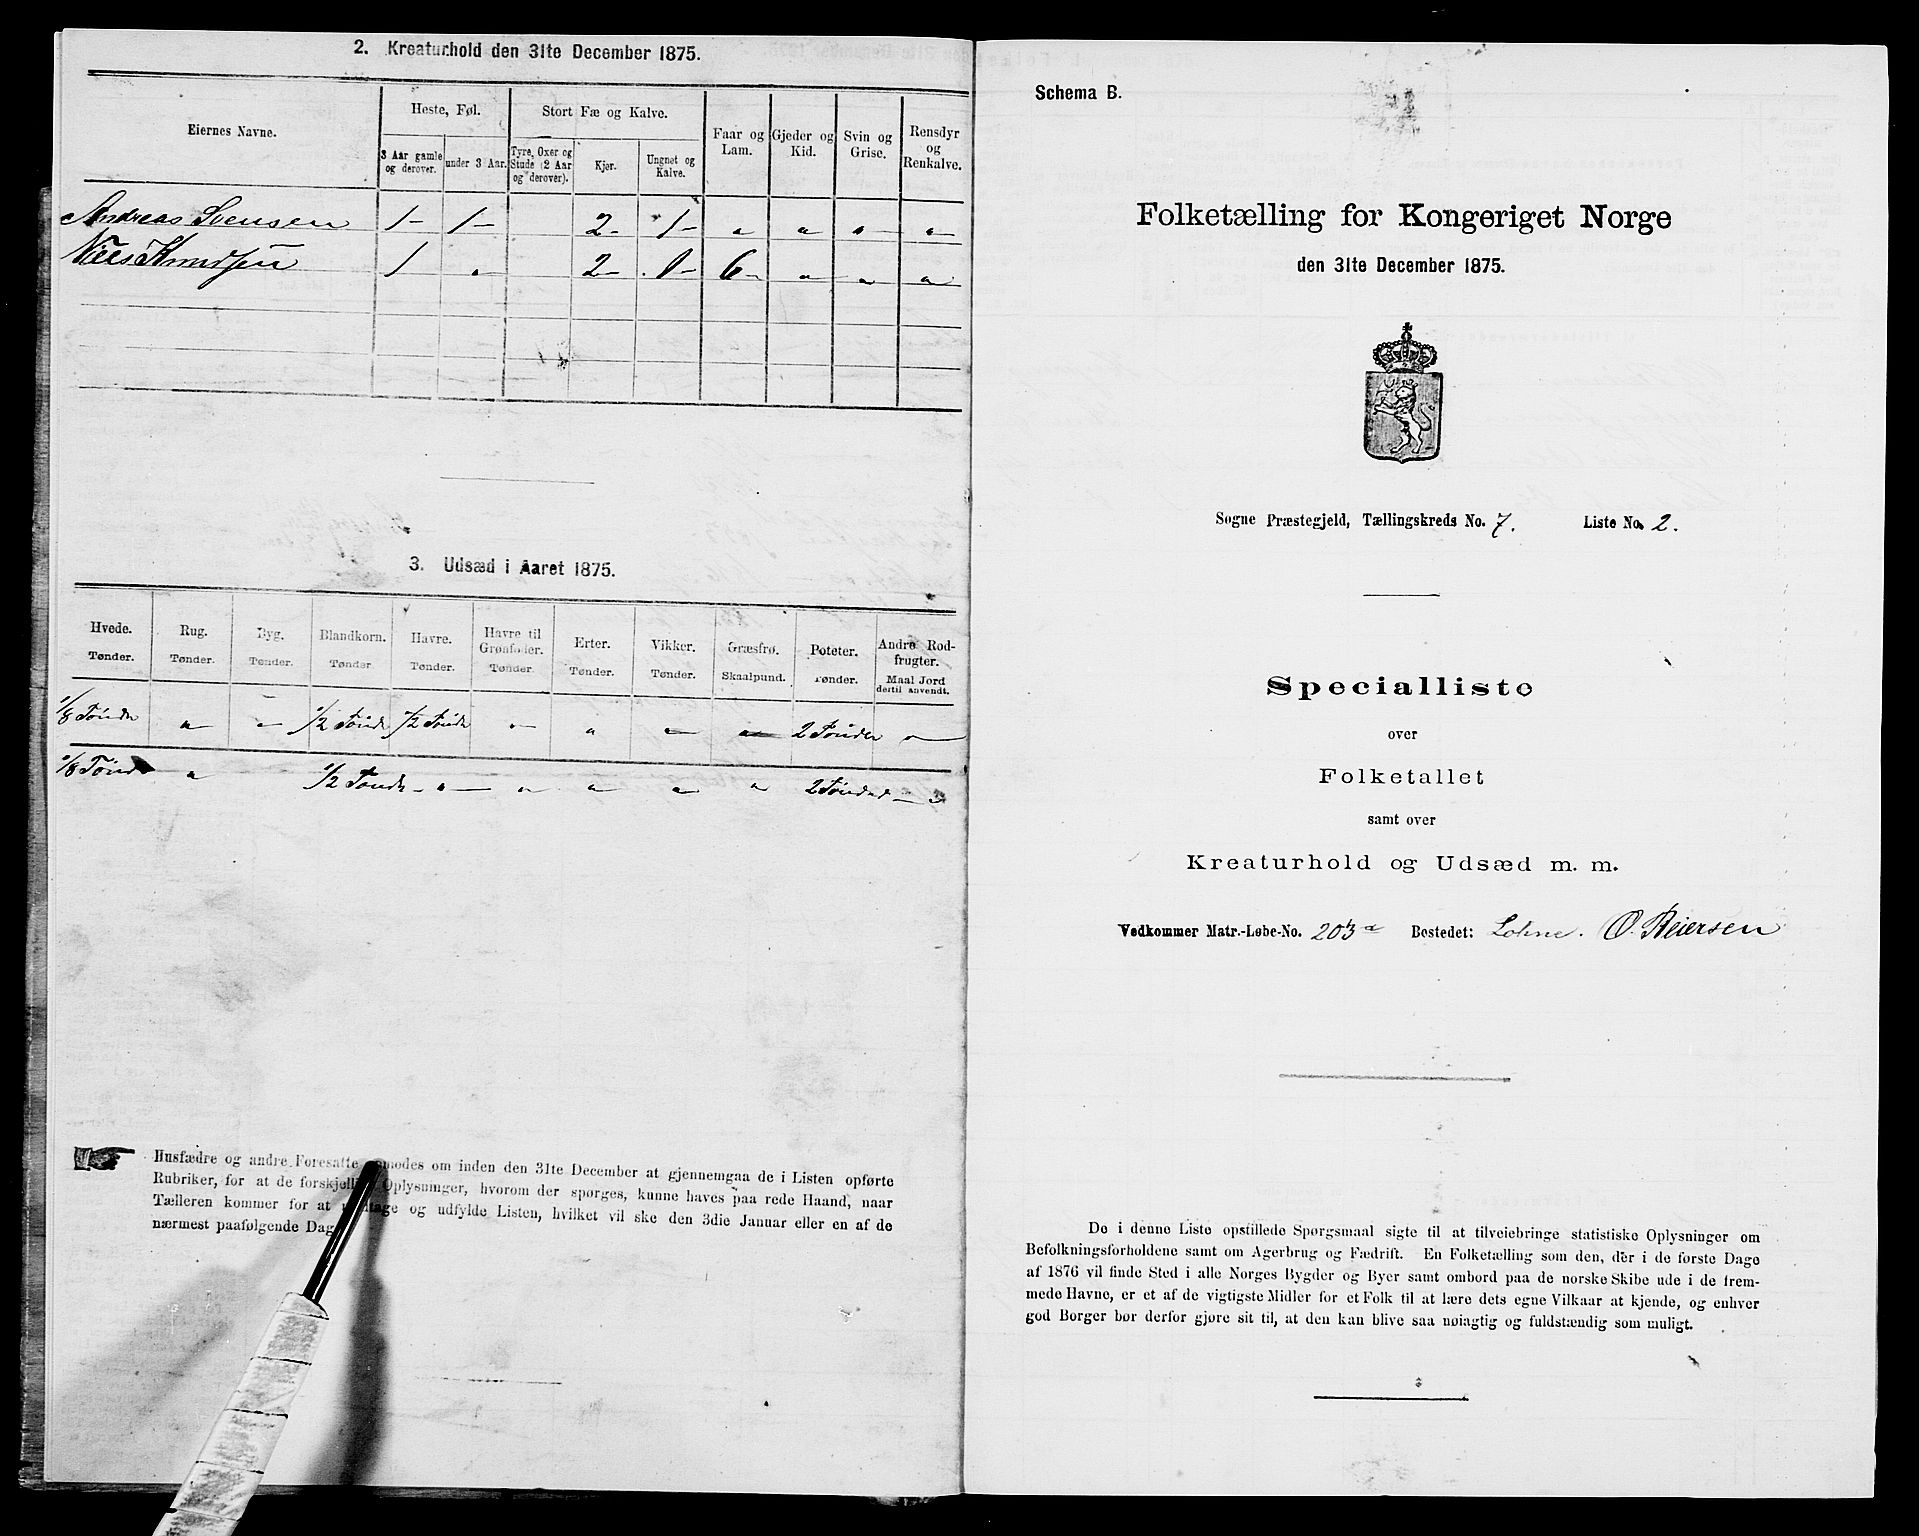 2. Kreaturhold den 31te December 1875.
Eiernes Navne.
Heste, Føl.
Stort Fæ og Kalve.
Faar og Lam.
Gjeder og Kid.
Svin og Grise.
Rensdyr og Renkalve.
3 Aar gamle og derover.
under 3 Aar.
Tyre, Oxer og Stude (2 Aar og derover).
Kjør.
Ungnøt og Kalve.
Andreas Svensen 1 - 1 - 2 - 1 - " " " "
Niels Knudsen 1 " 2 - 1 - 6 - " " "
3. Udsæd i Aaret 1875.
Hvede. Rug. Byg. Blandkorn. Havre. Havre til Grønfoder. Erter. Vikker. Græsfrø. Poteter. Andre Rodfrugter.
Tønder. Tønder. Tønder. Tønder. Tønder. Tønder. Tønder. Tønder. Skaalpund. Tønder. Maal Jord dertil anvendt.
1/8 Tønde " " 1/2 Tønde 1/2 Tønde " " " " 2 Tønder "
1/8 Tønde " 1/2 Tønde - " - " " " " 2 Tønder - "
Husfædre og andre Foresatte anmodes om inden den 31te December at gjennemgaa de i Listen opførte
Rubriker, for at de forskjellige Oplysninger, hvorom der spørges, kunne haves paa rede Haand, naar
Tælleren kommer for at modtage og udfylde Listen, hvilket vil ske den 3die Januar eller en af de
nærmest paafølgende Dage
Schema B.
Folketælling for Kongeriget Norge
den 31te December 1875.
Sogne Præstegjeld, Tællingskreds No. 7. Liste No. 2.
Specialliste
over
Folketallet
samt over
Kreaturhold og Udsæd m. m.
Vedkommer Matr.-Løbe-No. 203a Bostedet: Lohne. O. Reiersen
De i denne Liste opstillede Spørgsmaal sigte til at tilveiebringe statistiske Oplysninger om
Befolkningsforholdene samt om Agerbrug og Fædrift. En Folketælling som den, der i de første Dage
af 1876 vil finde Sted i alle Norges Bygder og Byer samt ombord paa de norske Skibe ude i de frem-
mede Havne, er et af de vigtigste Midler for et Folk til at lære dets egne Vilkaar at kjende, og enhver
god Borger bør derfor gjøre sit til, at den kan blive saa nøiagtig og fuldstændig som muligt.